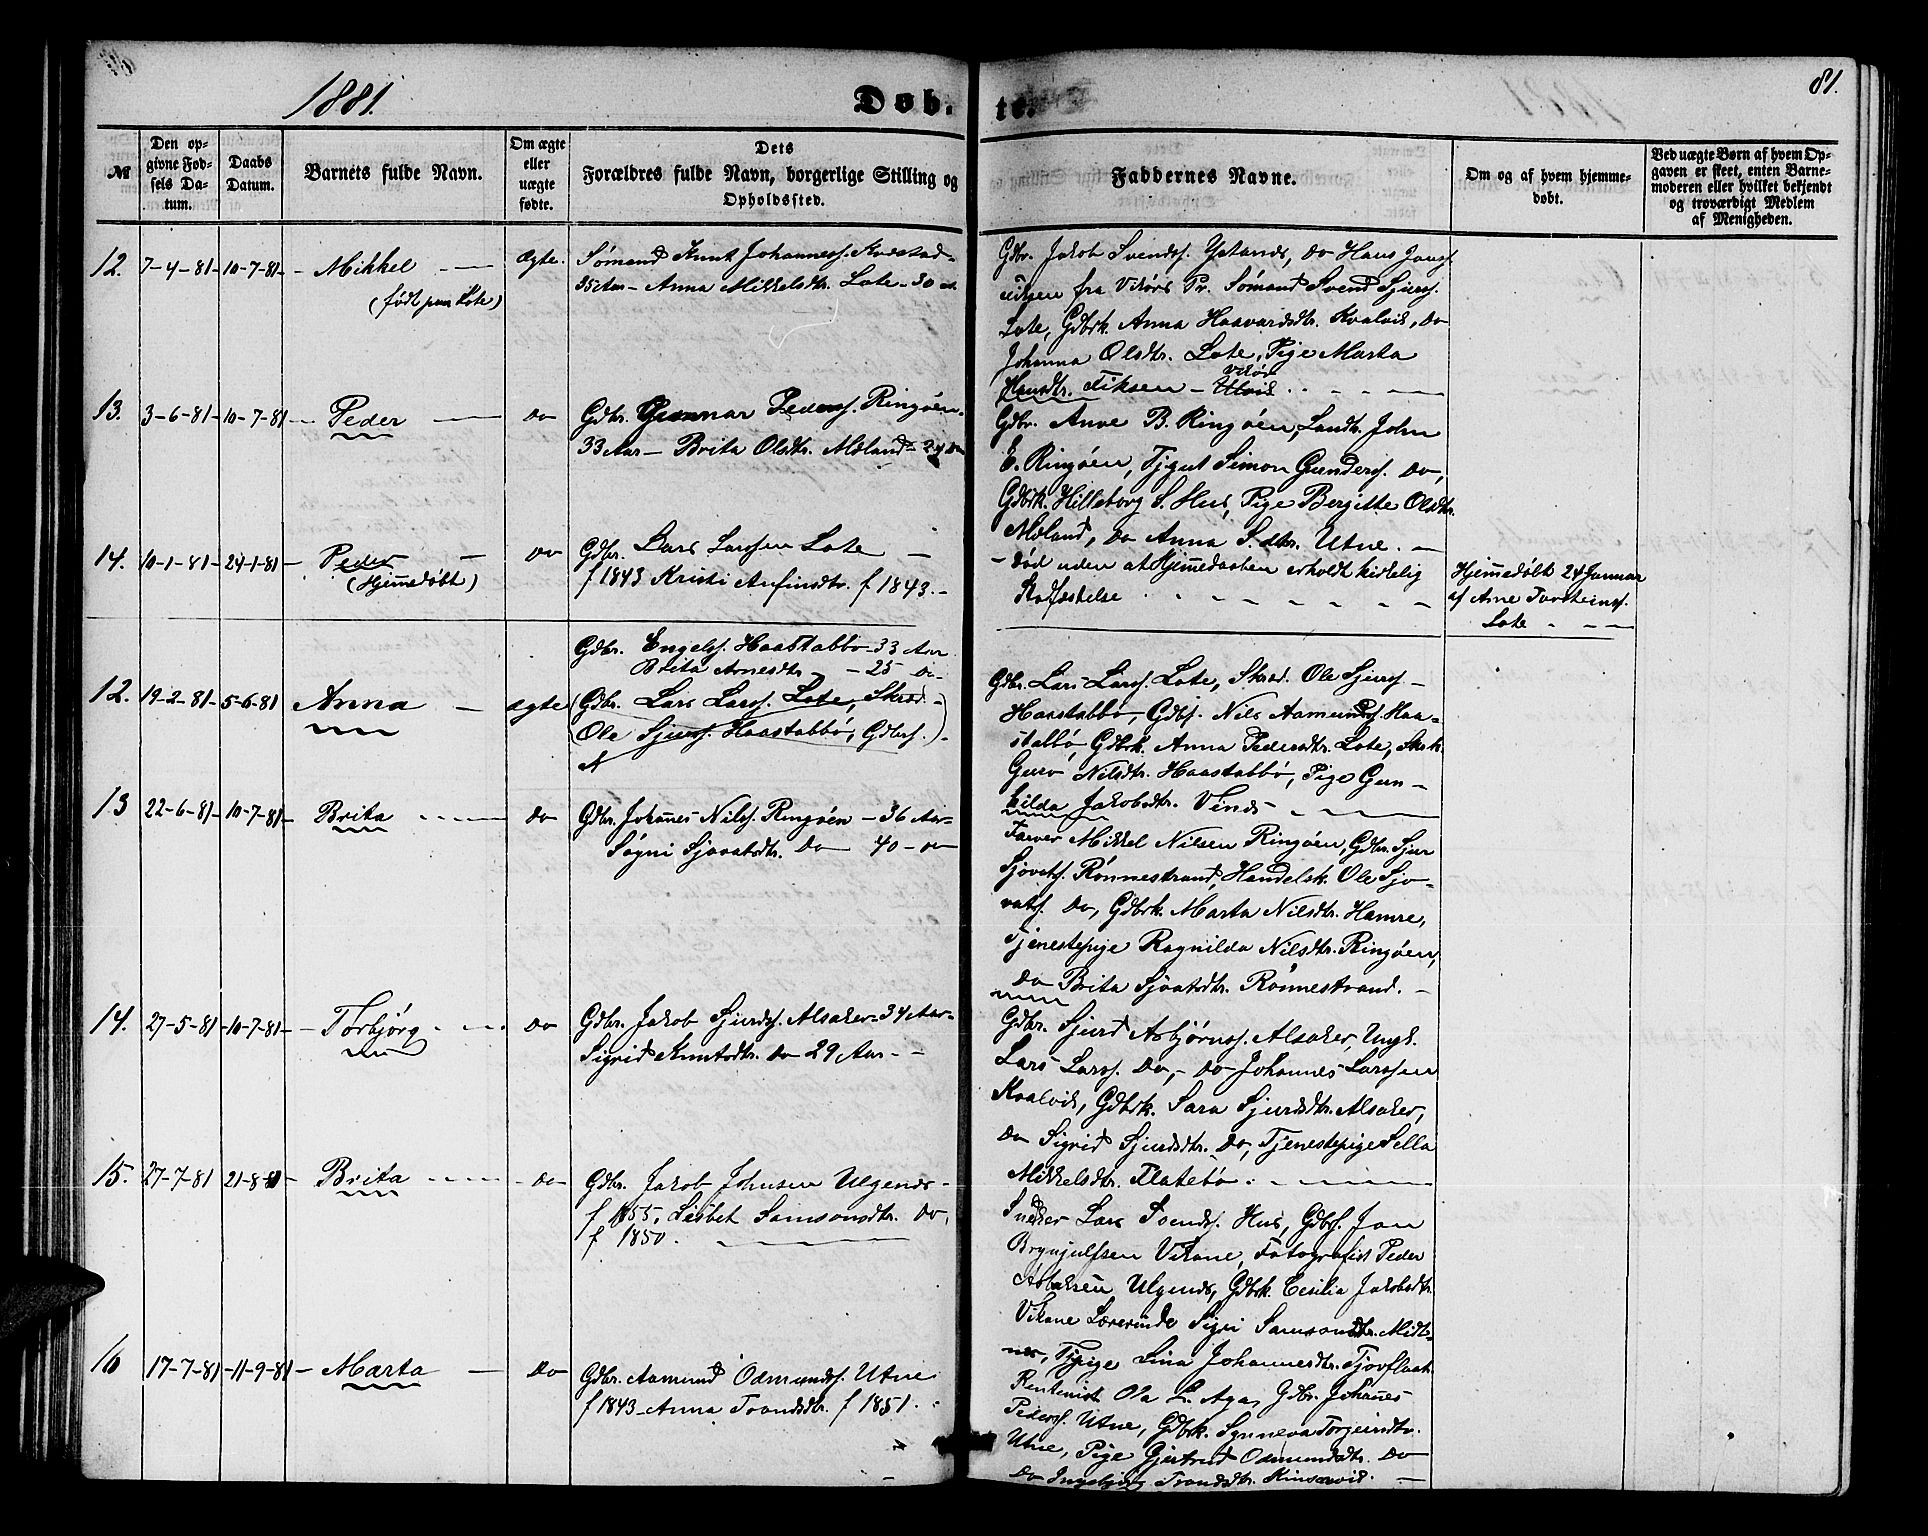 1881.
Døb-
te.
81.
№
Den op-
givne Fød-
sels Da-
tum.
Daabs
Datum.
Barnets fulde Navn.
Om ægte
eller
uægte
fødte.
Dets
Forældres fulde Navn, borgerlige Stilling og
Opholdssted.
Faddernes Navne.
Om og af hvem hjemme-
døbt.
Ved uægte Børn af hvem Op-
gaven er skeet, enten Barne-
moderen eller hvilket bekjendt
og troværdigt Medlem
af Menigheden.
12. 7-4-81- 10-7-81- - Mikkel - ægte.
(født paa Lote)
Sømand Knut Johanness.
35 Aar - Anna Mikkelsdtr. Lote - 30
Gdbr. Jakob Svends. Ystanes, Do Hans
fra Vikørs Pr. Sømand Svend Sjurs.
Lote, Gdbrk. Anna Haavardsdtr. Kvalvik, Do
Johanna Olsdtr. Lote, Pige Marta
Hansdtr. Fiksen - Utvik Vikør
13. 3-6-81- 10-7-81 - Peder - Do
Gdbr. Gunnar Peders. Ringøen
33 Aar - Brita Olsdtr. Mæland -
Gdbr. Arne B. Ringøen, Landh. John
E. Ringøen, Tjgut Simon Gunders. Do,
Gdbrk. Hilleborg S. Hus, Pige Bergitte Olsdtr.
Mæland, Do Anna S.dtr. Utne. -
14. 10-1-81- 24-1-81- Peder - Do
(Hjemedøbt)
Gdbr. Lars Larssen Lote -
f 1843 Kristi Anfinsdtr. f 1843. -
- død uden at Hjemedaaben erholdt kirkelig
Stadfæstelse
Hjemedøbt 24 Januar
af Arne Torsteins.
Lote
12. 19-2-81- 5-6-81 Anna - ægte
Gdbr. Engels. Haastabbø - 33 Aar
Brita Arnesdtr. - 25 Do
(Gdbr. Lars Larss. Lote, Skræd.
(Ole Sjurs. Haastabbø, Gdbrs.)
N
Gdbr. Lars Larss. Lote, Skræd. Ole Sjurs. -
Haastabbø, Gdbs. Nils Aamunds. Haa-
stabbø, Gdbrk. Anna Pedersdtr. Lote,
Guro Nilsdtr. Haastabbø, Pige Gun-
hilda Jakobsdtr. Vines
13 22-6-81- 10-7-81- Brita Do
Gdbr. Johanes Nilss. Ringøen - 36 Aar
Søgni Sjovatsdtr. Do 40 - Do
Farver Mikkel Nilsen Ringøen, Gdbr. Sjur
Sjovats. Rønnestrand, Handelsk. Ole Sjo-
vats. Do, Gdbrk. Marta Nilsdtr. Hamre,
Tjenestepige Ragnilda Nilsdtr. Ringøen,
Do Brita Sjovatsdtr. Rønnestrand. -
14. 27-5-81- 10-7-81- - Torbjørg Do
Gdbr. Jakob Sjurds. Alsaker - 34 Aar -
Sigrid Knutsdtr. Do 29 Aar -
Gdbr. Sjurd Asbjørns. Alsaker, Ungk.
Lars Larss. Do, - Do Johannes Larssen
Kvalvik, Gdbrk. Sara Sjurdsdtr. Alsaker,
Do Sigrid Sjurdsdtr. Do, Tjenestepige Sella
Mikkelsdtr. Flatebø.
15. 27-7-81 21-8-81 - Brita - Do -
Gdbr. Jakob Johnsen Ulgenes -
f 1855, Lisbet Samsonsdtr. Do,
f 1850.
Snedker Lars Svends. Hus, Gdbs. Jon
Brynjulfsen Vikane, Fotografist Peder
Ulgenes, Gdbrk. Cecilia Jakobsdtr.
Vikane Lærerinde Sigri Samsonsdtr. Midt-
nes, Tjpige Lina Johannesdtr. Tjovflaat
16 17-7-81 - 11-9-81 - Marta - Do
Gdbr. Aamund Odmunds. Utne
f 1843 - Anna Trondsdtr. f 1851.
Rentenist Ola L. Aga, Gdbr. Johanes
Peders. Utne, Gdbrk. Synneva Torgeirsdtr.
Utne, Pige Gjertrud Odmundsdtr. Do
Do Ingebjørg Trondsdtr. Kinservik. -